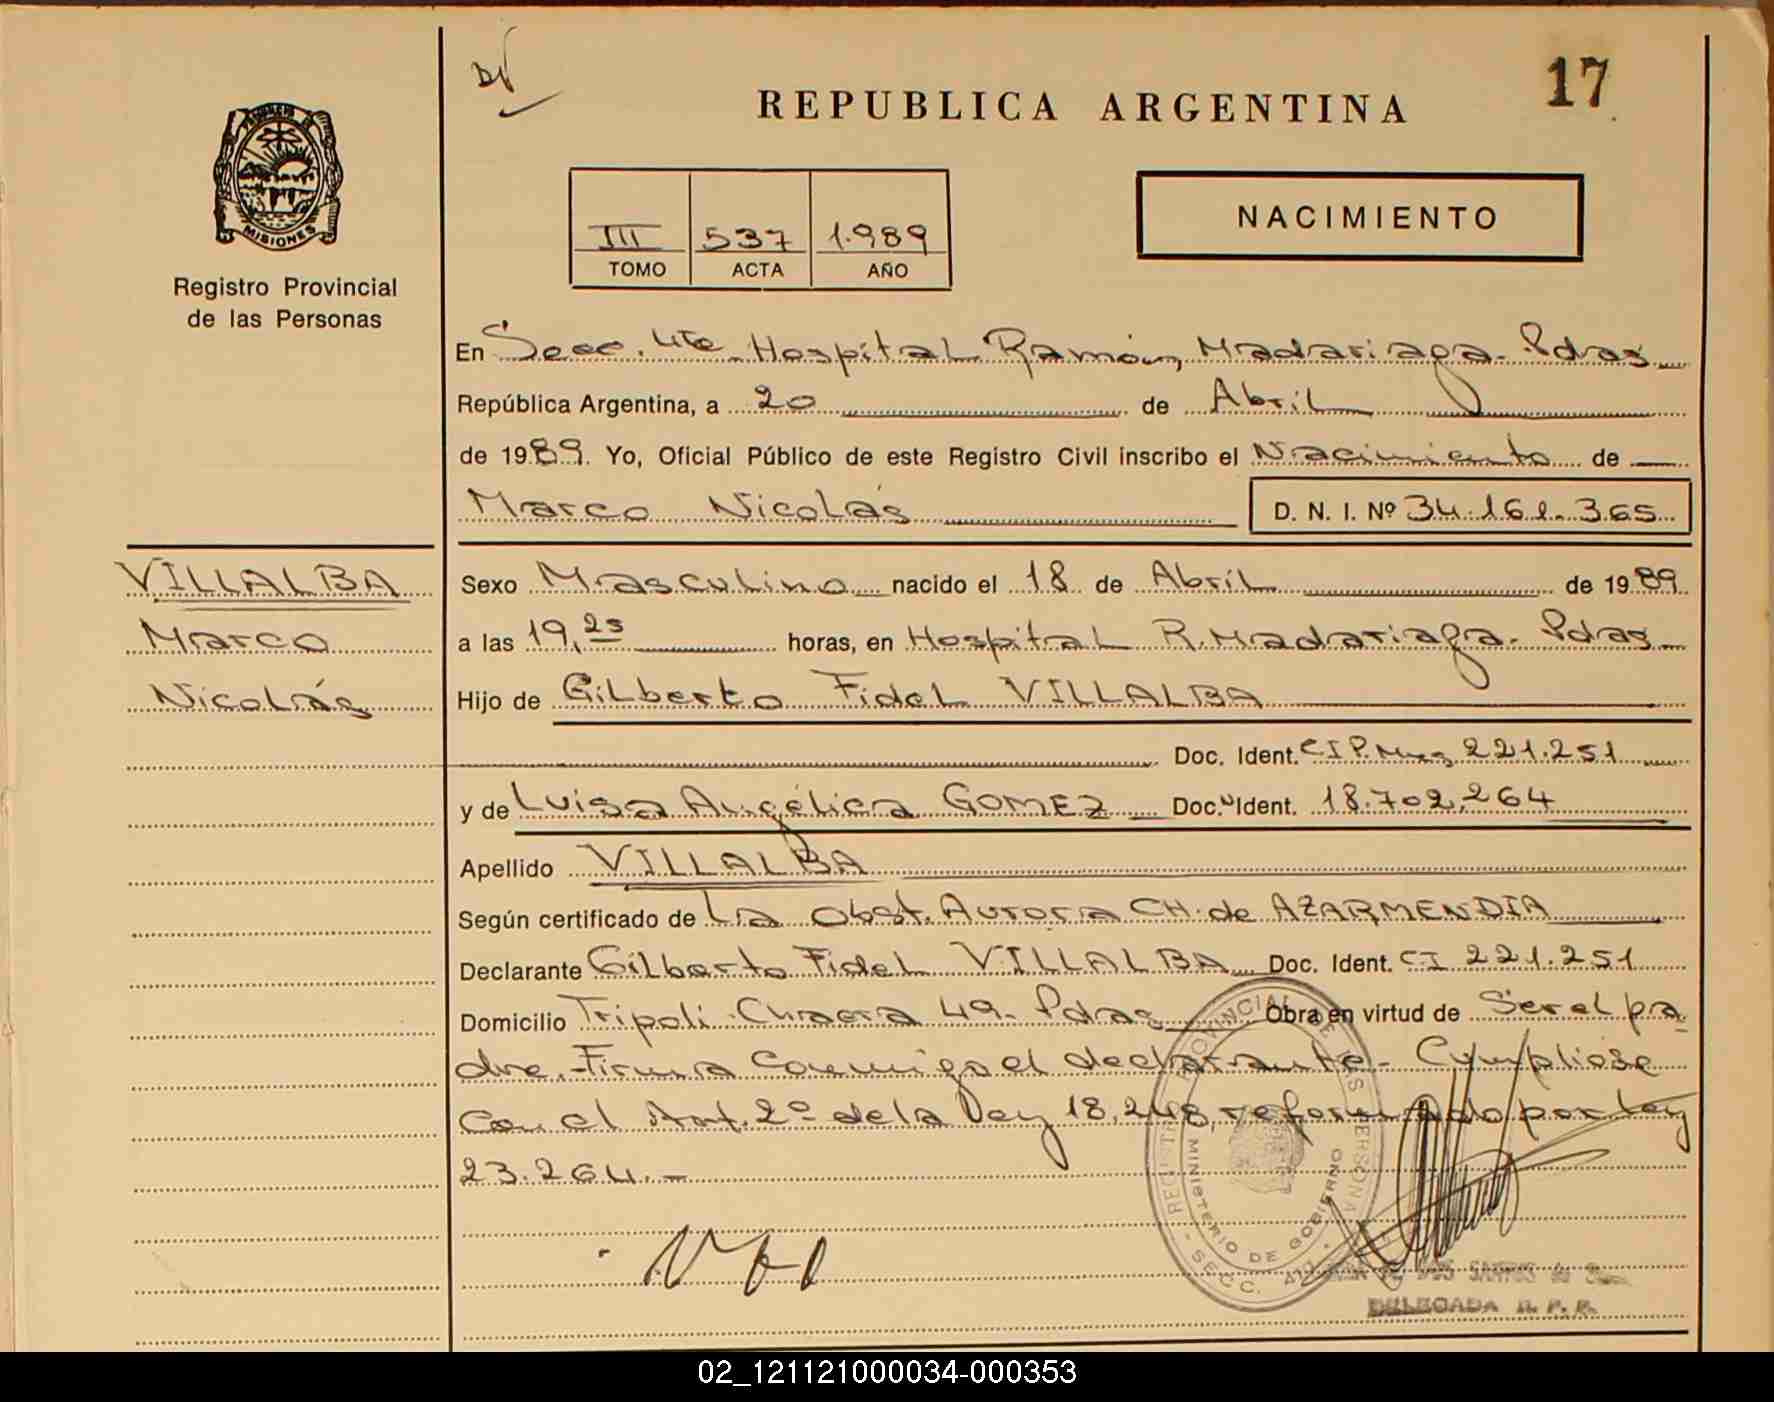 17
REPUBLICA ARGENTINA
MISIONES
Registro Provincial
de las Personas
III 537 1.989
TOMO ACTA AÑO
NACIMIENTO
En Secc. 4ta Hospital Ramón Madariaga - Pdas
República Argentina, a 20 de Abril
de 1989. Yo, Oficial Público de este Registro Civil inscribo el Nacimiento de
Marco Nicolás D. N. I. Nº 34.161.365
VILLALBA
Marco
Nicolás
Sexo Masculino nacido el 18 de Abril de 1989
a las 19,25 horas, en Hospital R. Madariaga - Pdas
Hijo de Gilberto Fidel VILLALBA
Doc. Ident. C I P. Mnes 221.251
y de Luisa Angélica GOMEZ Doc. Ident. 18.702.264
Apellido VILLALBA
Según certificado de La Obst. Aurora CH. de AZARMENDIA
Declarante Gilberto Fidel VILLALBA Doc. Ident. CI 221.251
Domicilio Tripoli - Chacra 49 - Pdas Obra en virtud de Ser el pa
dre. - Firma conmigo el declarante - Cumplióse
con el Art. 2º de la ley 18.248, reformado por ley
23.264. -
REGISTRO PROVINCIAL DE LAS PERSONAS
MINISTERIO DE GOBIERNO
SECC. 4ta
DOS SANTOS de
DELEGADA R. P. P.
02_121121000034-000353